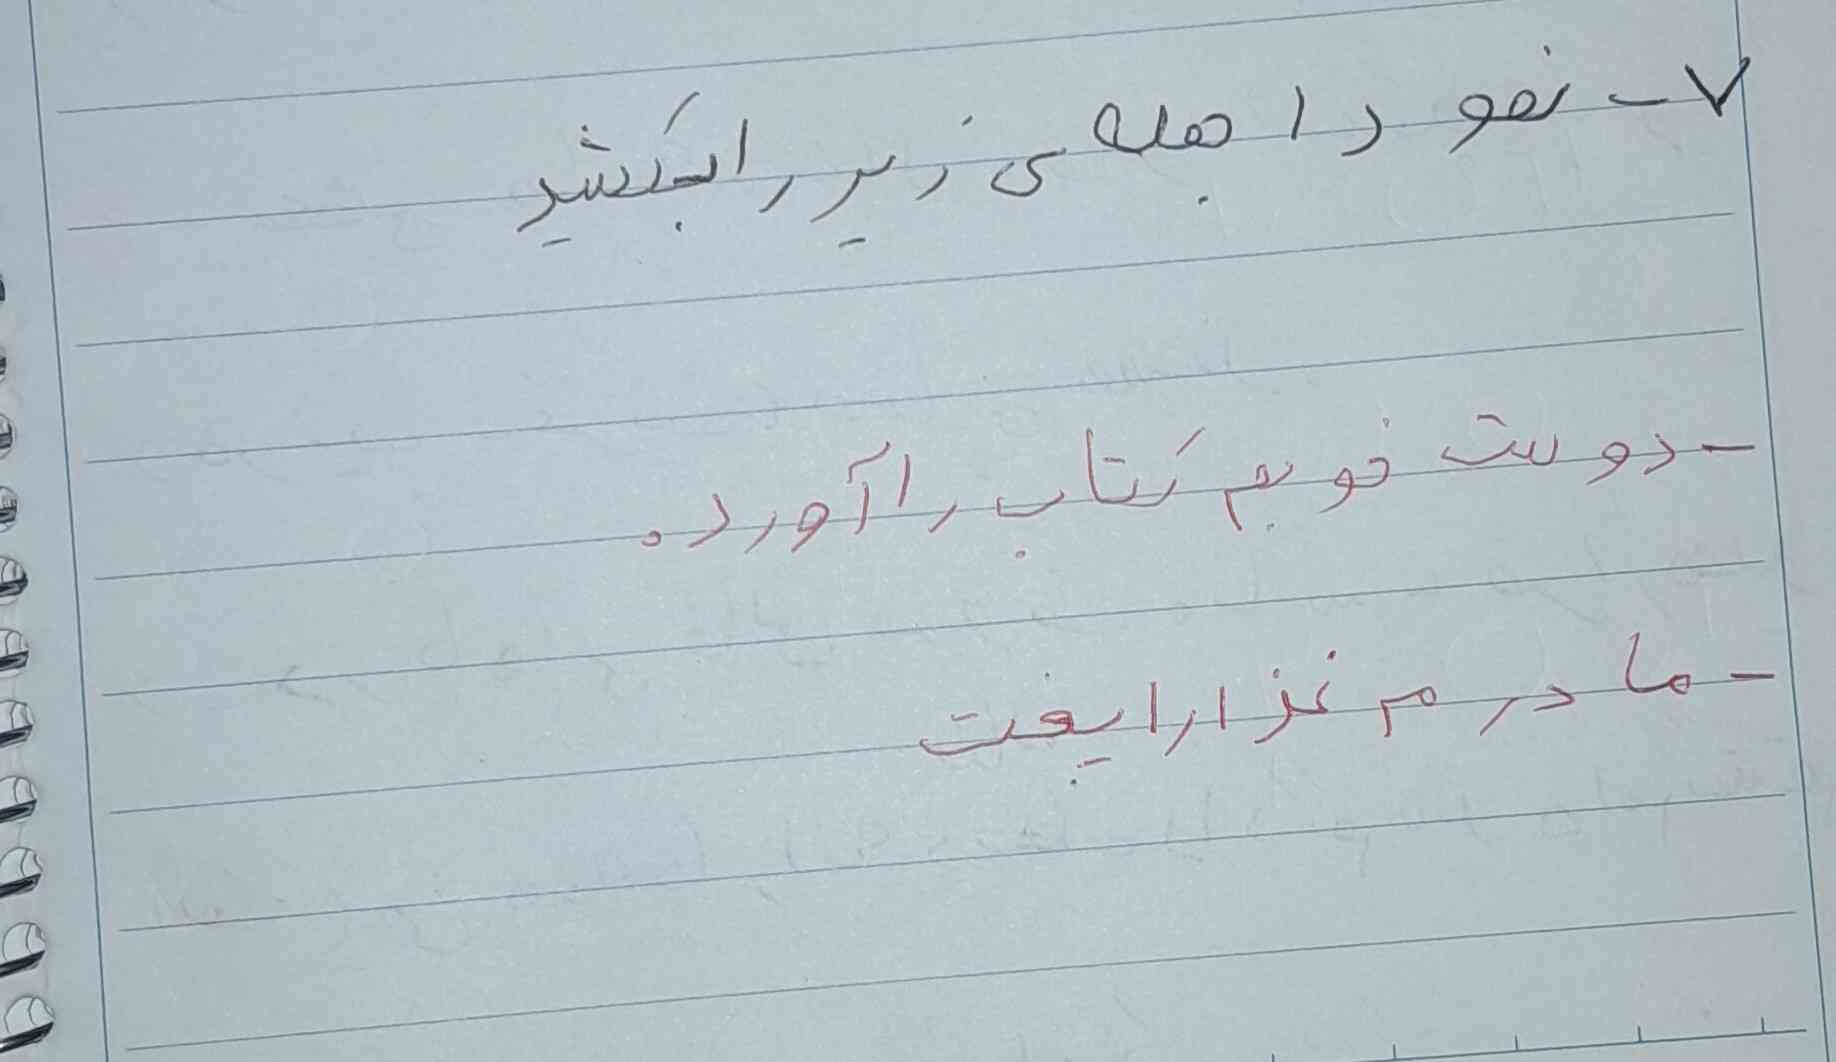 ۷- نمودار جمله ی زیر را بکشید
- دوست خوبم کتاب را آورد.
- مادرم غذا را پخت